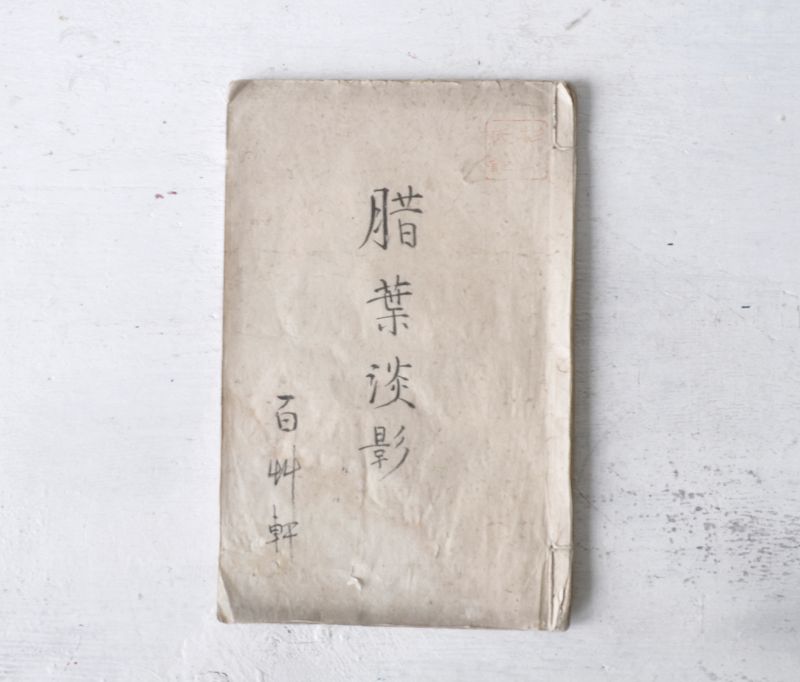 腊葉淡影
百艸軒